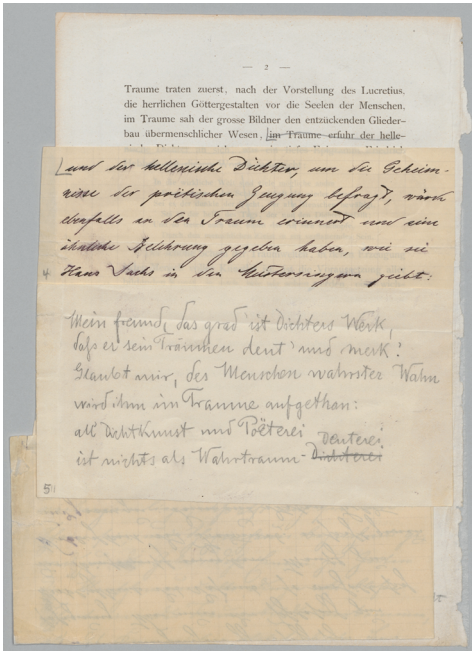 — 2 —
Traume traten zuerst, nach der Vorstellung des Lucretius,
die herrlichen Göttergestalten vor die Seelen der Menschen,
im Traume sah der grosse Bildner den entzückenden Glieder-
bau übermenschlicher Wesen, [im Traume erfuhr der helle-
[und der hellenische Dichter, um die Geheim-
nisse der poetischen Zeugung befragt, würde
ebenfalls an den Traum erinnert und eine
ähnliche Belehrung gegeben haben, wie sie
4 Hans Sachs in den Meistersingern giebt:
Mein Freund, das grad' ist Dichters Werk,
daß er sein Träumen deut' und merk'.
Glaubt mir, des Menschen wahrster Wahn
wird ihm im Traume aufgethan:
all' Dichtkunst und Poëterei
Deuterei
ist nichts als Wahrtraum-Dichterei
5